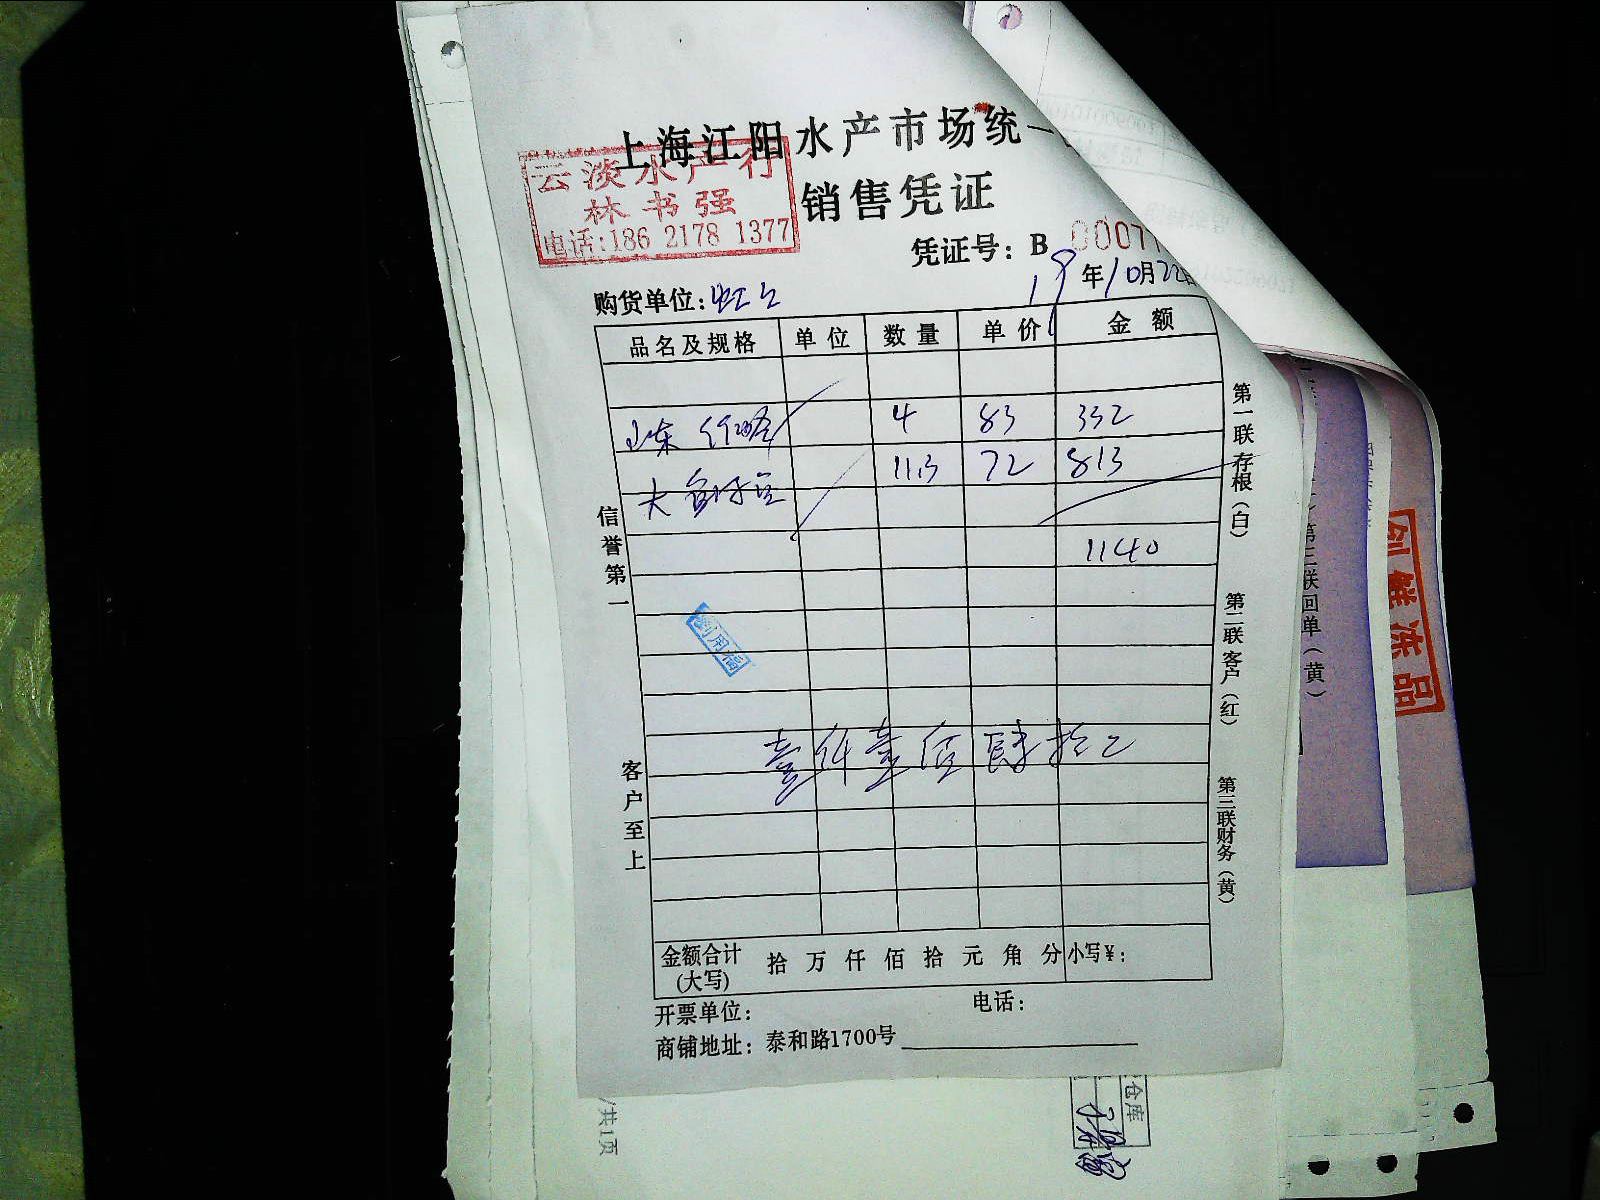 上海江阳水产市场统一
销售凭证
云淡水产行
林书强
电话:186 2178 1377
凭证号: B 00071
19年10月22日
购货单位:虹上
品名及规格 单位 数量 单价 金额
山东 4 83 332
大 11.3 72 813
1140
壹仟壹佰肆拾元
信誉第一
客户至上
第一联存根(白)
第二联客户(红)
第三联财务(黄)
金额合计(大写) 拾 万 仟 佰 拾 元 角 分 小写¥:
开票单位: 电话:
商铺地址: 泰和路1700号
第二联回单(黄)
冻品
仓库
/共1页